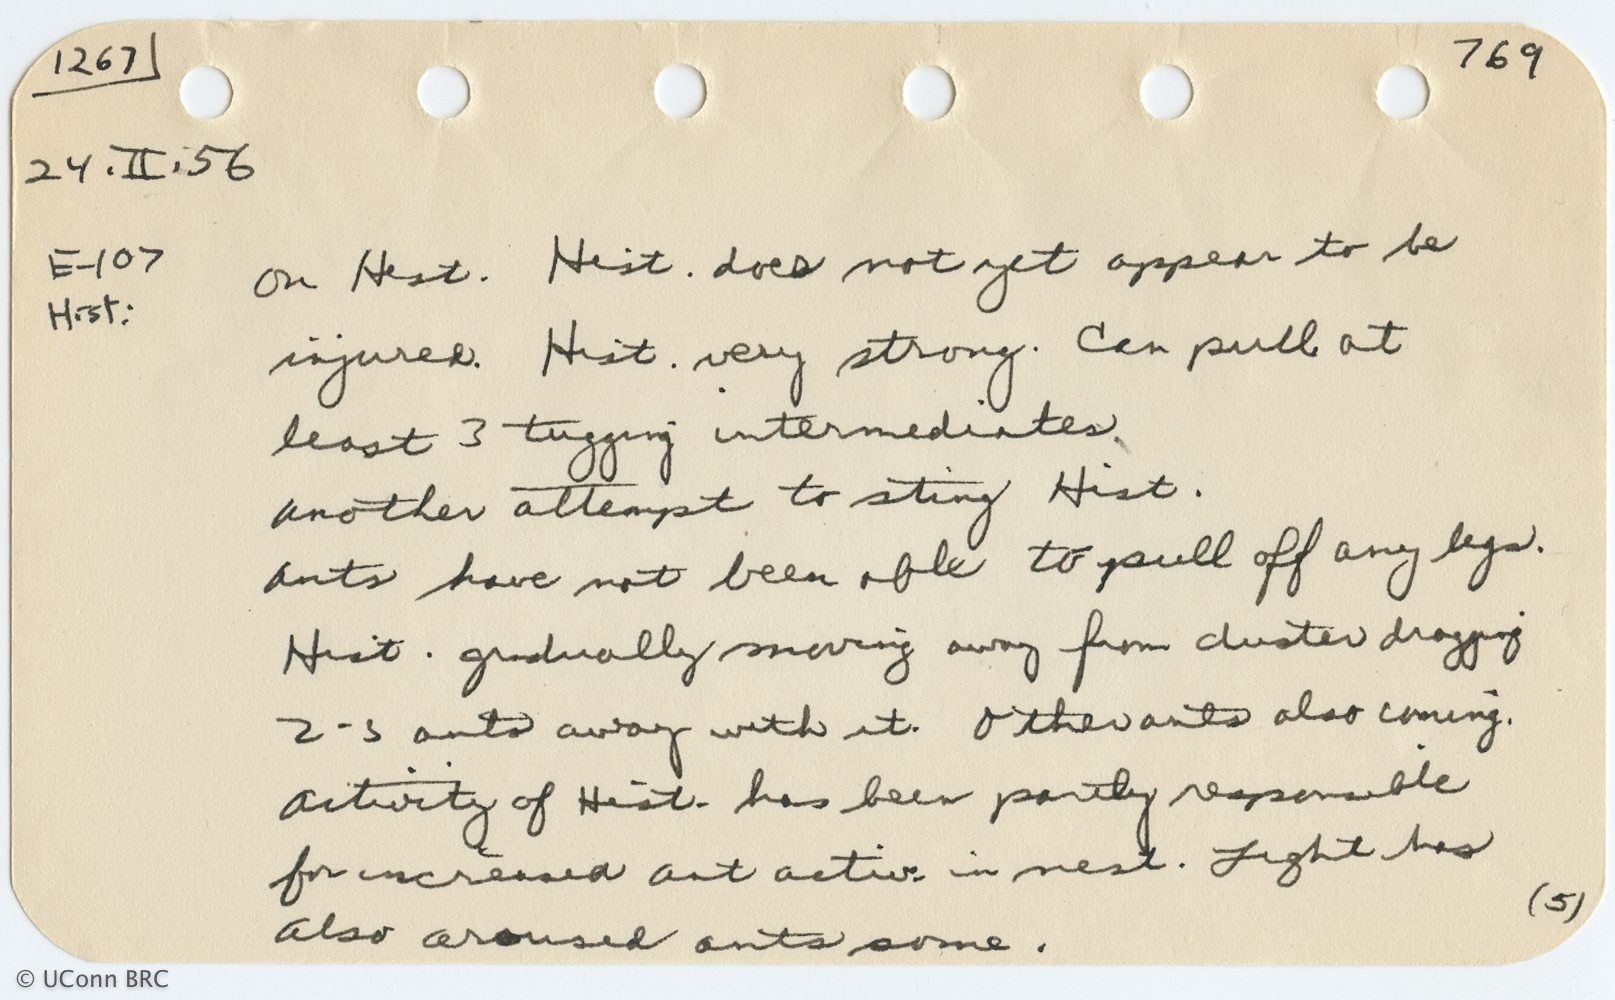 1267
769
24.II.56
E-107
Hist:
on Hist. Hist. does not yet appear to be
injured. Hist. very strong. Can pull at
least 3 tugging intermediates.
Another attempt to sting Hist.
Ants have not been able to pull off any legs.
Hist. gradually moving away from cluster dragging
2-3 ants away with it. Other ants also coming.
Activity of Hist. has been partly responsible
for increased ant activ. in nest. Light has
also aroused ants some.
(5)
© UConn BRC